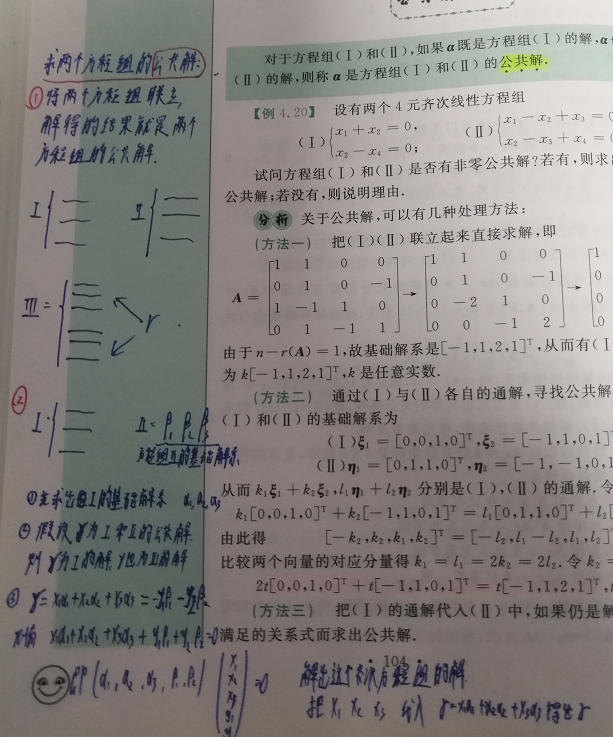 求两个方程组的公共解:
①将两个方程组联立,
解得的结果就是两个
方程组的公共解.
I {
II {
III = {
r
②
I {
II = β₁ β₂ β₃
方程组II的基础解系
①先求出I的基础解系 α₁ α₂ α₃
②假设γ为I和II的公共解
则γ为I的解,γ也为II的解
③ γ=x₁α₁+x₂α₂+x₃α₃=-y₁β₁-y₂β₂
x₁α₁+x₂α₂+x₃α₃+y₁β₁+y₂β₂=0
即(α₁,α₂,α₃,β₁,β₂) (x₁ x₂ x₃ y₁ y₂) =0
解出这个齐次方程组的解
把 x₁ x₂ x₃ 代入 γ=x₁α₁+x₂α₂+x₃α₃得出γ
对于方程组(Ⅰ)和(Ⅱ),如果α既是方程组(Ⅰ)的解,α
(Ⅱ)的解,则称α是方程组(Ⅰ)和(Ⅱ)的公共解.
【例 4.20】 设有两个 4 元齐次线性方程组
(Ⅰ){x₁ + x₂ = 0, (Ⅱ){x₁ − x₂ + x₃ = 0
x₂ − x₄ = 0; x₂ − x₃ + x₄ =
试问方程组(Ⅰ)和(Ⅱ)是否有非零公共解?若有,则求
公共解;若没有,则说明理由.
分析 关于公共解,可以有几种处理方法:
(方法一) 把(Ⅰ)(Ⅱ)联立起来直接求解,即
[1 1 0 0] [1 1 0 0] [1
[0 1 0 −1] [0 1 0 −1] [0
A = → →
[1 −1 1 0] [0 −2 1 0] [0
[0 1 −1 1] [0 0 −1 2] [0
由于 n − r(A) = 1,故基础解系是[−1,−1... 
为 k[−1,1,2,1]ᵀ,k 是任意实数.
(方法二) 通过(Ⅰ)与(Ⅱ)各自的通解,寻找公共解
(Ⅰ)和(Ⅱ)的基础解系为
(Ⅰ)ξ₁ = [0,0,1,0]ᵀ,ξ₂ = [−1,1,0,1]
(Ⅱ)η₁ = [0,1,1,0]ᵀ,η₂ = [−1,−1,0,1
从而 k₁ξ₁ + k₂ξ₂,l₁η₁ + l₂η₂ 分别是(Ⅰ),(Ⅱ)的通解.令
k₁[0,0,1,0]ᵀ + k₂[−1,1,0,1]ᵀ = l₁[0,1,1,0]ᵀ + l₂[
由此得 [−k₂,k₂,k₁,k₂]ᵀ = [−l₂,l₁ − l₂,l₁,l₂]ᵀ
比较两个向量的对应分量得 k₁ = l₁ = 2k₂ = 2l₂.令 k₂ =
2t[0,0,1,0]ᵀ + t[−1,1,0,1]ᵀ = t[−1,1,2,1]ᵀ,
(方法三) 把(Ⅰ)的通解代入(Ⅱ)中,如果仍是解
满足的关系式而求出公共解.
104